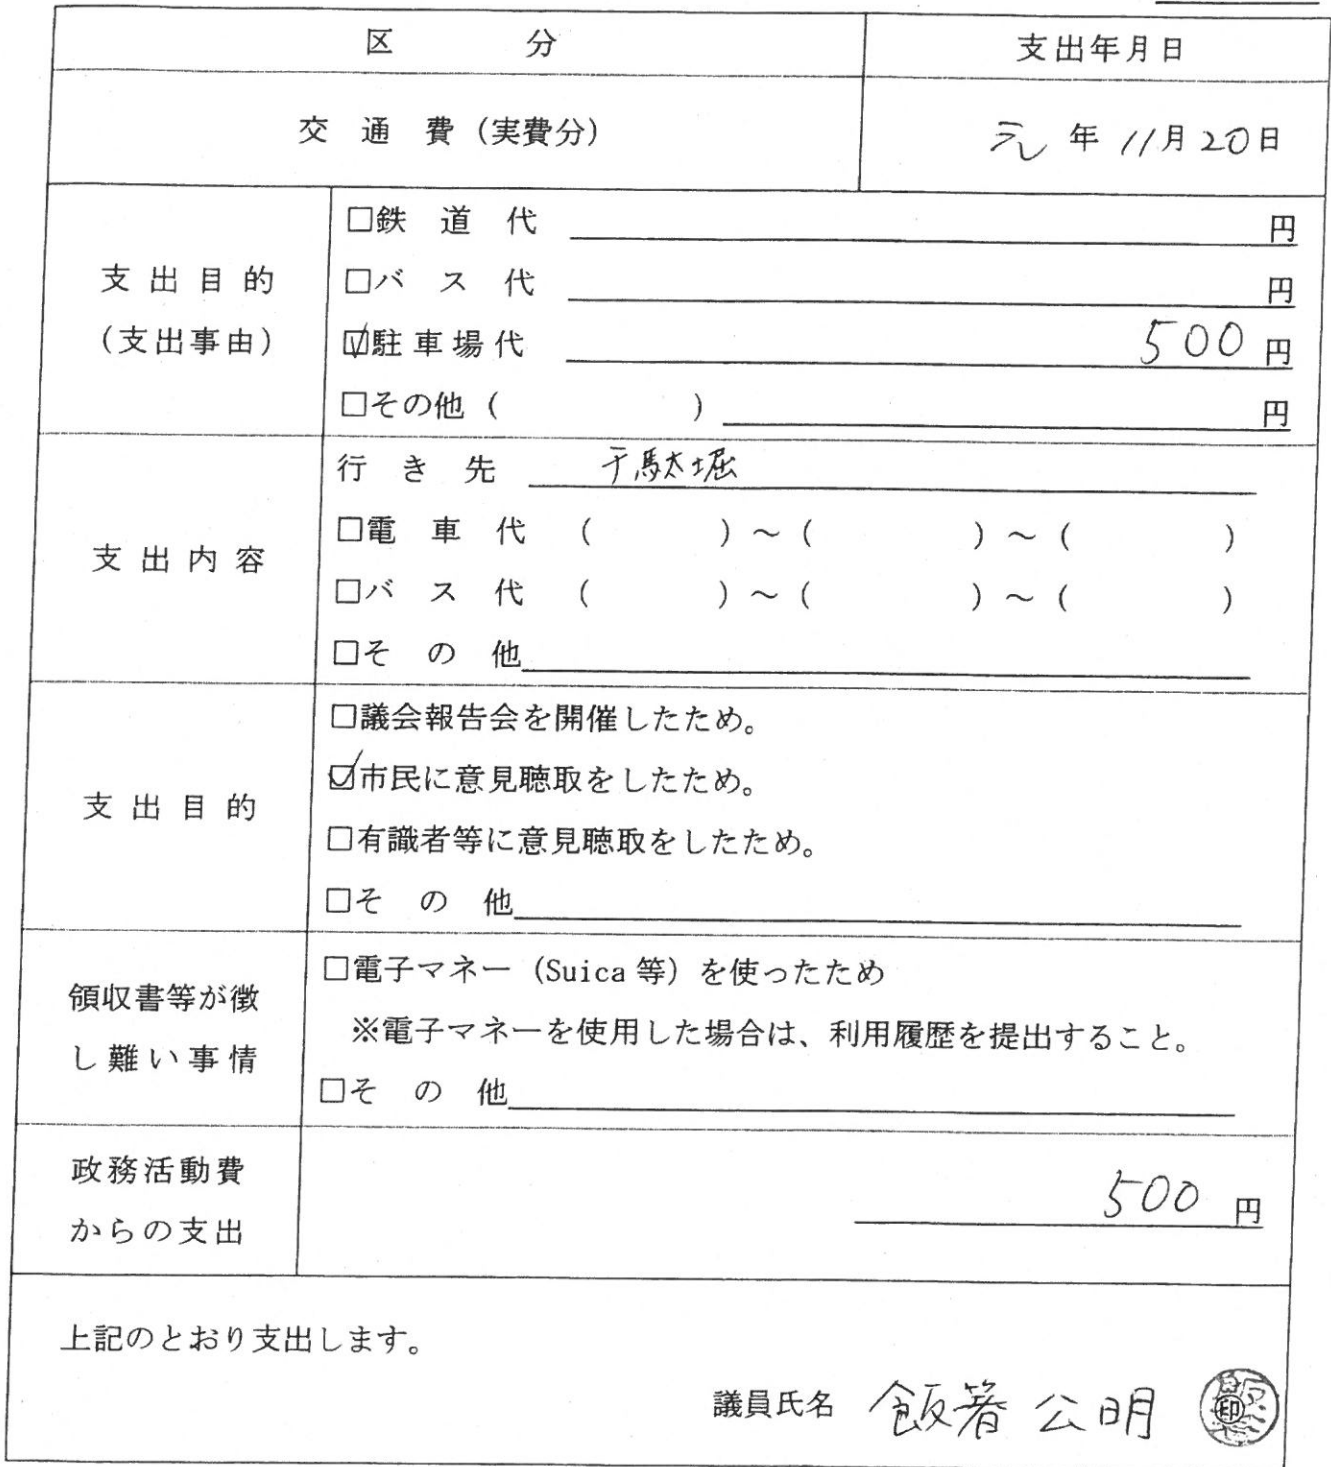 区　　分　支出年月日
交 通 費（実費分）　元 年 11月 20日
支出目的
（支出事由）
□鉄 道 代　円
□バ ス 代　円
☑駐車場代　500 円
□その他（　　　）　円
支出内容
行 き 先　千駄堀
□電 車 代 （　　　）～（　　　）～（　　　）
□バ ス 代 （　　　）～（　　　）～（　　　）
□そ の 他
支出目的
□議会報告会を開催したため。
☑市民に意見聴取をしたため。
□有識者等に意見聴取をしたため。
□そ の 他
領収書等が徴
し難い事情
□電子マネー（Suica 等）を使ったため
※電子マネーを使用した場合は、利用履歴を提出すること。
□そ の 他
政務活動費
からの支出
500 円
上記のとおり支出します。
議員氏名　飯箸 公明　印